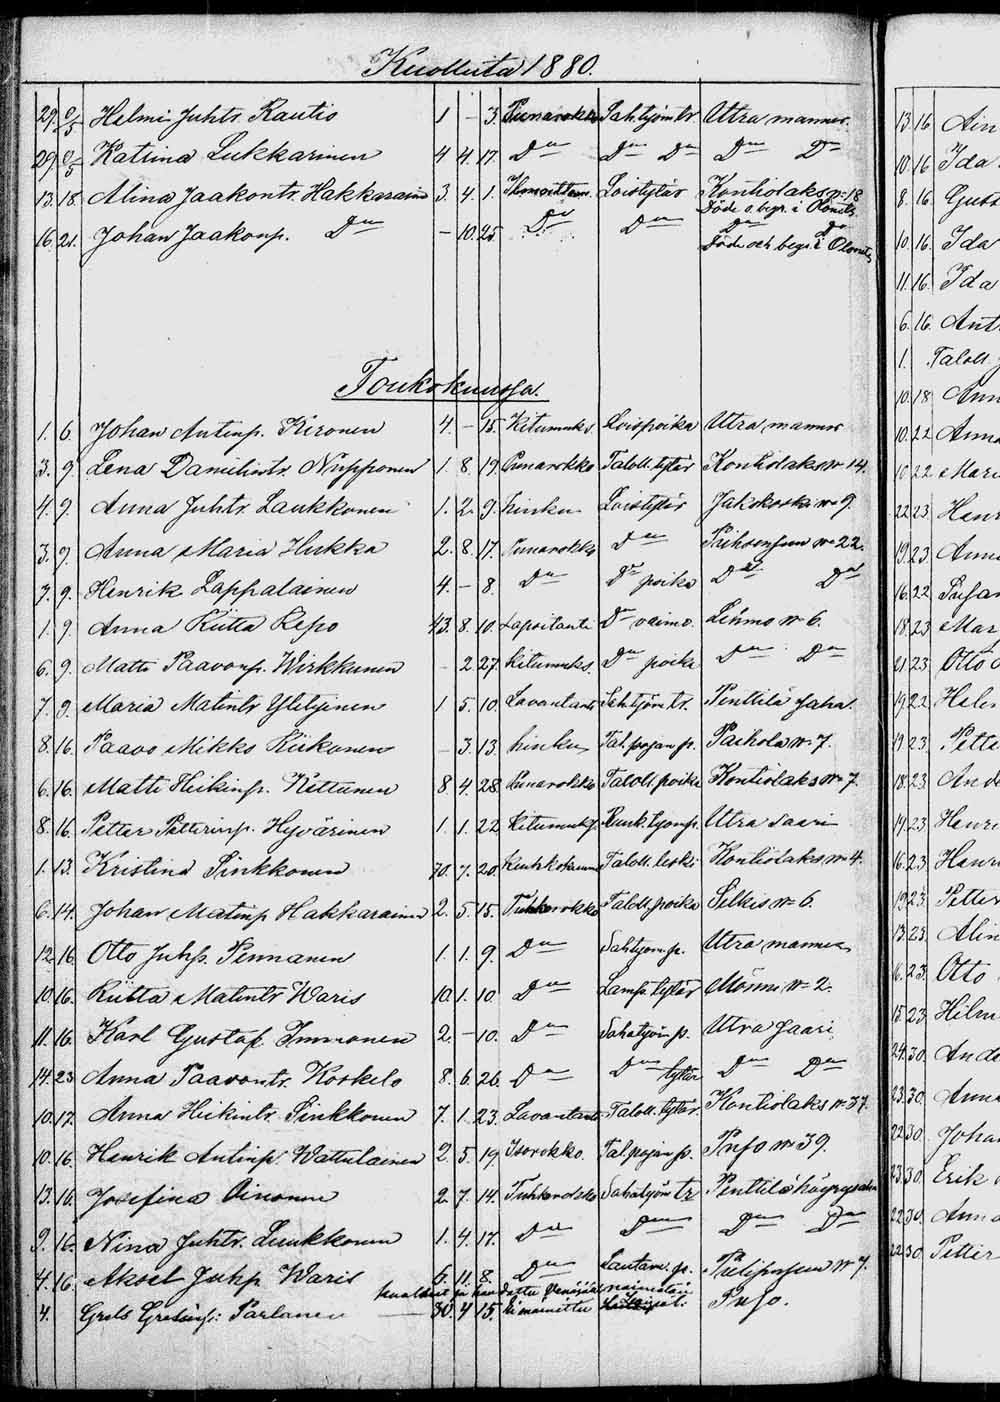 Kuolleita 1880.
29. 9/5 Helmi Juhtr. Rautio 1 – 3. Punarokko Sah.työm. tr Utra mannes.
29. 9/5 Katrina Lukkarinen 4 4. 17. Do Do Do Do Do
13. 18. Alina Jaakontr. Hakkarainen 3. 4. 1. Loistytär Kontiolaks No 18
Döde o. begr. i Olonets
16. 21. Johan Jaakonp. Do – 10. 25. Do Do Do Do
Döde och begr. i Olonets
Toukokuussa.
1. 6. Johan Antinp. Kironen 4. – 15. Kitumuks. Loispoika Utra mannes
3. 9. Lena Danielintr. Nupponen 1. 8. 19. Punarokko Taloll. tytär Kontiolaks No 14.
4. 9. Anna Juhtr. Laukkonen 1. 2. 9. hinku Loistytär Jakokoski No 9.
3. 9. Anna Maria Hukka 2. 8. 17. Punarokko Do No 22.
7. 9. Henrik Lappalainen 4. – 8. Do Do poika Do Do
1. 9. Anna Riitta Repo 43. 8. 10. Lapsitauti Do vaimo. Lehmo No 6.
6. 9. Matti Paavonp. Wirkkunen – 2. 27. Kitumuks. Do poika Do Do
7. 9. Maria Matintr Yletyinen 1 5. 10. Lavantauti Sahtyöm. tr. Penttilä saha.
8. 16. Paavo Mikks Kiikonen – 3. 13. hinku Tal. pojan p. Paihola No 7.
6. 16. Matti Heikinp. Kettunen 8 4. 28. Punarokko Taloll. poika Kontiolaks No 7.
8. 16. Petter Petterinp. Hyvärinen 1. 1. 22. Kitumuks. Ruuk. työm. p. Utra saari
1. 13. Kristina Sinkkonen 70. 7. 20. Keuhkokuume Taloll. leski Kontiolaks No 4.
6. 14. Johan Matinp Hakkarainen 2. 5. 15. Tuhkarokko Taloll. poika Selkie No 6.
12. 16. Otto Juhp. Pennanen 1. 1. 9. Do Sahtyöm. p. Utra mannes
10. 16. Riitta Matintr Waris 10. 1. 10 Do Lamp. tytär Mönni No 2.
11. 16. Karl Gustaf Immonen 2. – 10. Do Sahatyöm p. Utra saari
14. 23 Anna Paavontr. Koskelo 8. 6. 26. Do Do tytär Do Do
10. 17. Anna Heikintr. Sinkkonen 7. 1. 23. Lavantauti Taloll. tytär. Kontiolaks No 37.
10. 16. Henrik Antinp. Wattulainen 2. 5. 19. Isorokko. Tal. pojan p. Puso No 39.
13. 16. Josefina Oinonen 2. 7. 14. Tuhkarokko Sahatyöm tr Penttilä höyrysaha
9. 16. Nina Juhtr. Luukkonen 1. 4. 17. Do Do Do Do
4. 16. Aksel Juhp Waris 6. 11. 8. Do Lautam. p. No 7.
4. Parlanen 30. 4 15. Puso.
13. 16 Ain
10. 16 Ida
8. 16. Gust
10. 16. Ida
11. 16. Ida
6. 16. Ant
1. Taloll.
10. 18. Ann
10. 22 Anna
10 22 Mari
22 23 Henr
19. 23 Anna
16. 22
18. 23 Mar
21 23 Otto
19. 22 Hel
19 23. Pette
18. 23. Ande
19. 23 Henri
16. 23. Henri
19 23. Petter
13. 23. Alin
16. 23. Otto
15. 23. Hilm
24. 30. Ande
23. 30. Anna
22. 30. Johan
23. 30. Erik
22. 30. Anna
22 30 Petter